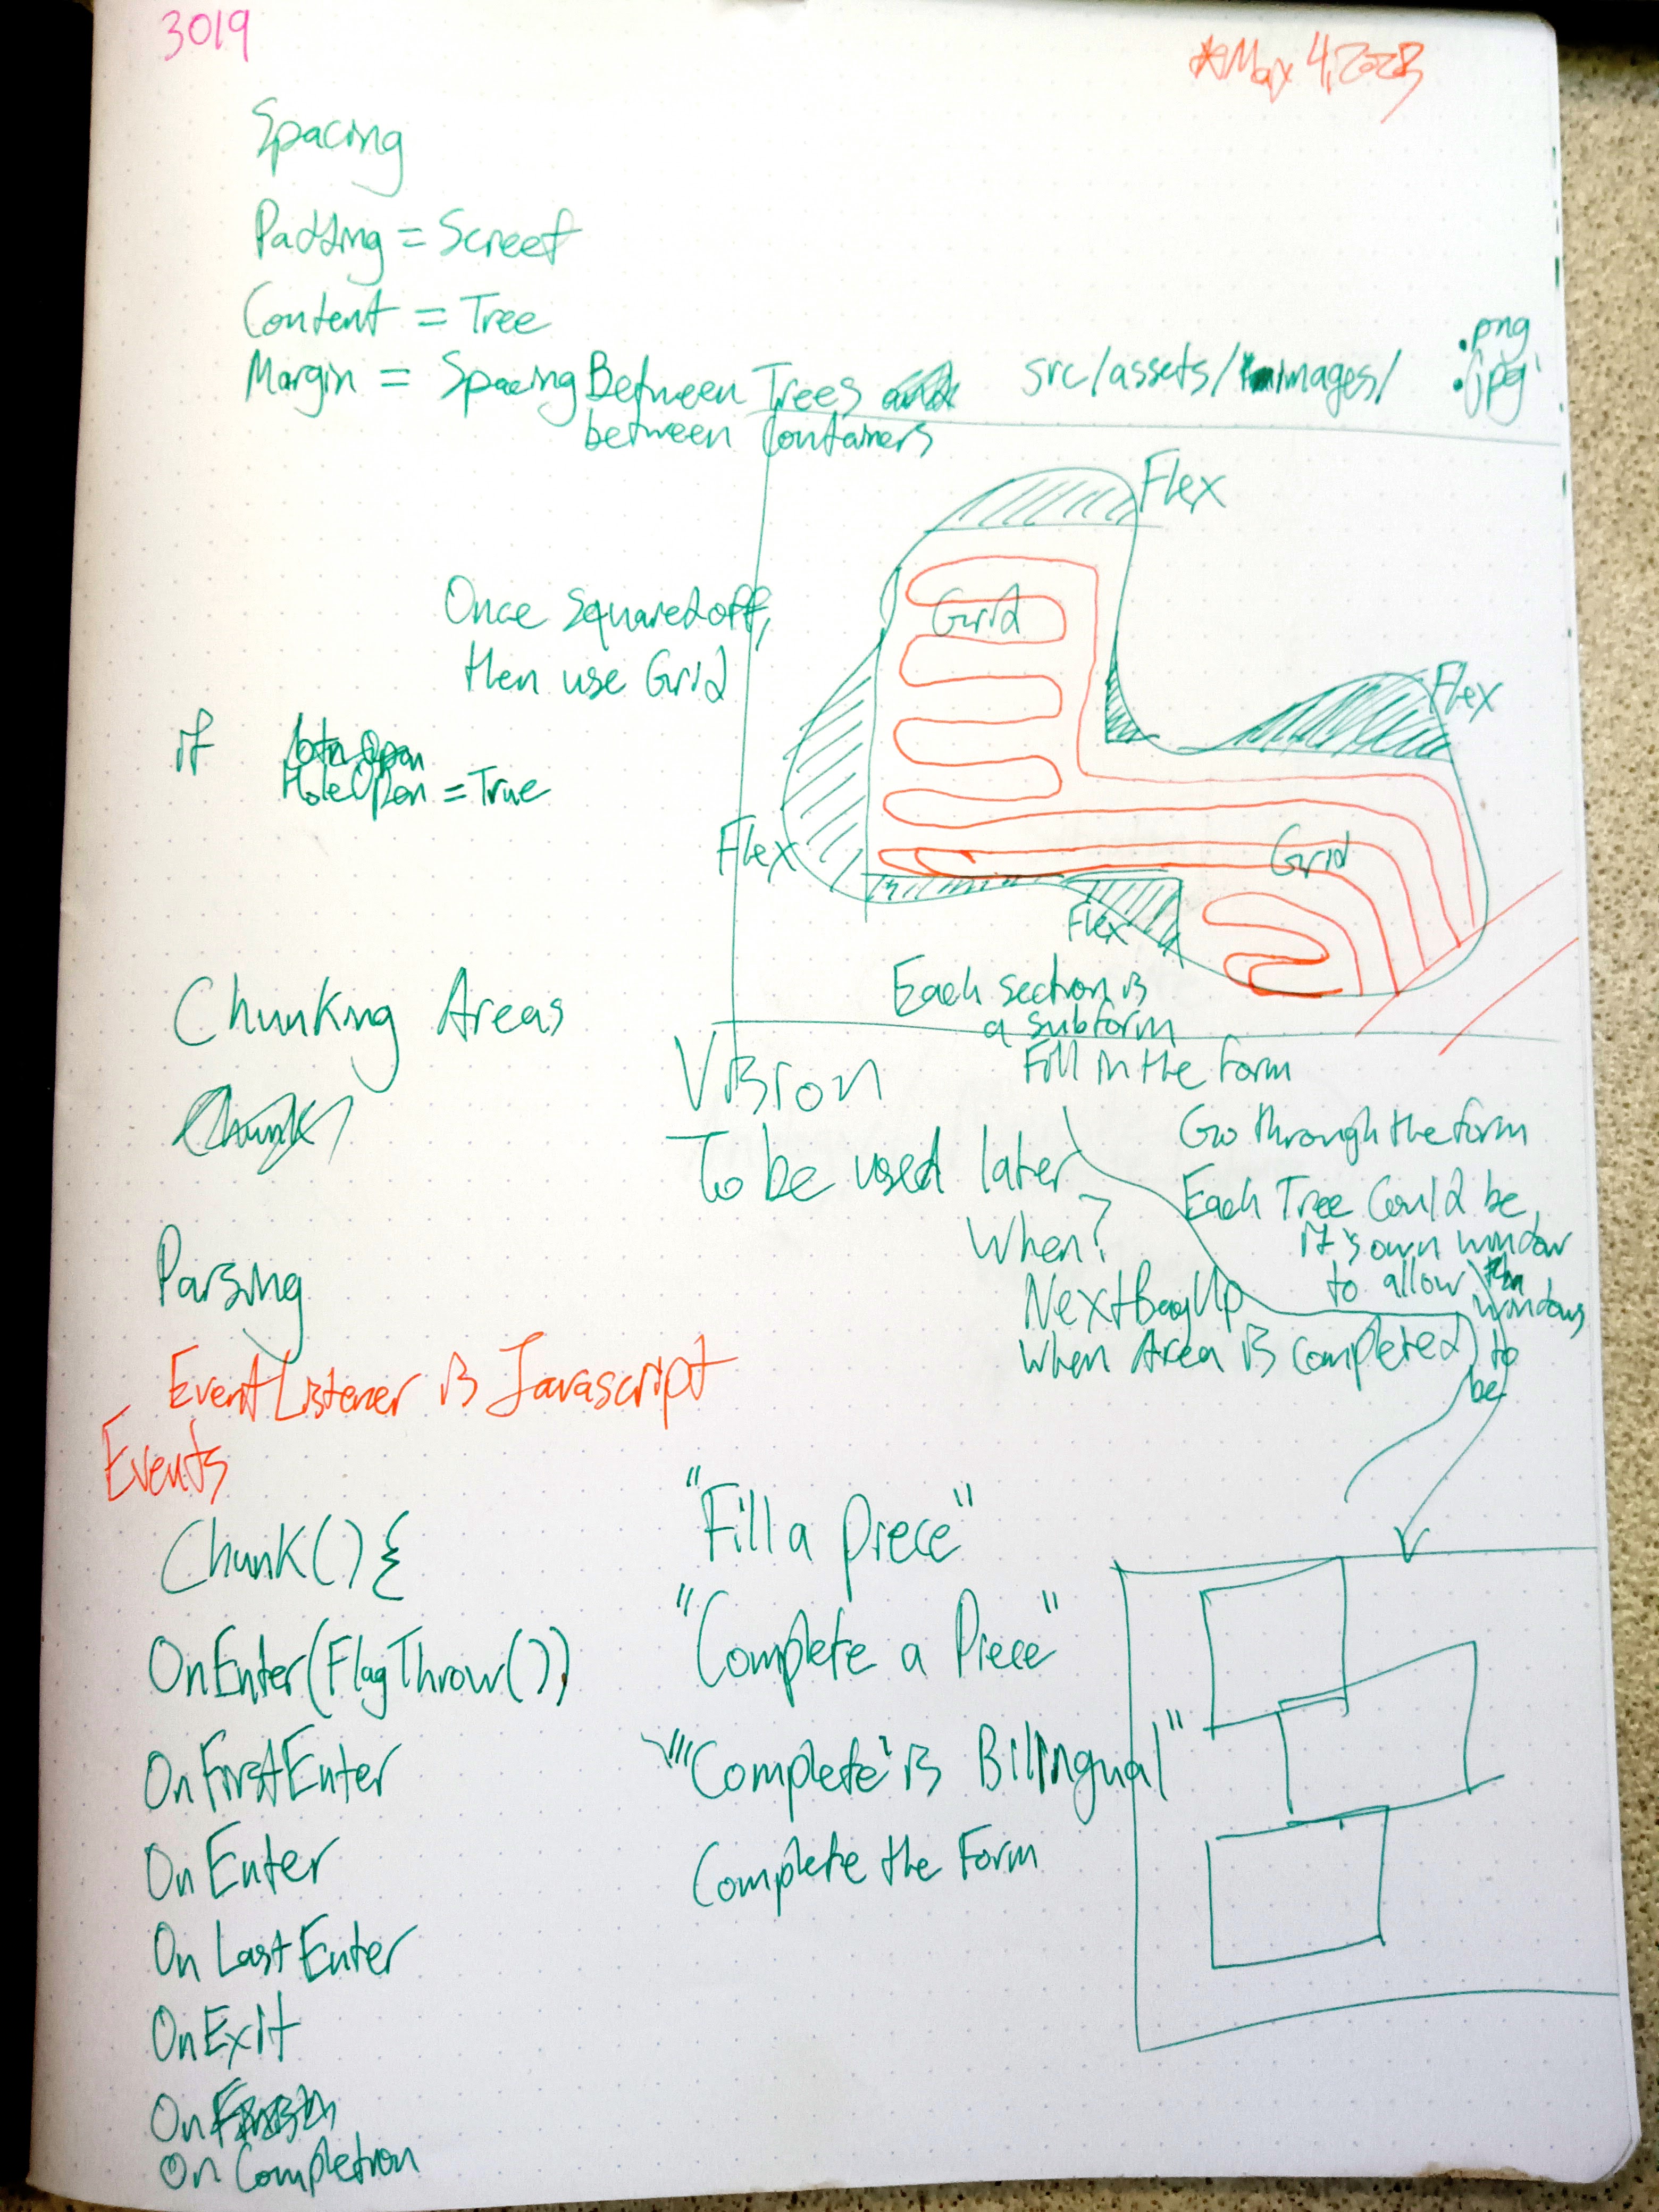 3019
*May 4, 2023
Spacing
Padding = Screef
Content = Tree
Margin = Spacing Between Trees
between Containers
src/assets/images/
.png
.jpg
Flex
Grid
Once squared off,
then use Grid
Flex
if
btnOpen
HoleOpen = True
Flex
Grid
Flex
Each section is
a subform
Fill in the Form
Chunking Areas
Chunk
Vision
To be used later
When?
NextBagUp
When Area is completed
Go through the form
Each Tree Could be
it's own window
to allow
windows
to
be
Parsing
EventListener is Javascript
Events
Chunk() {
OnEnter(FlagThrow())
OnFirstEnter
OnEnter
OnLastEnter
OnExit
On
OnCompletion
"Fill a piece"
"Complete a Piece"
"'Complete' is Bilingual"
Complete the Form